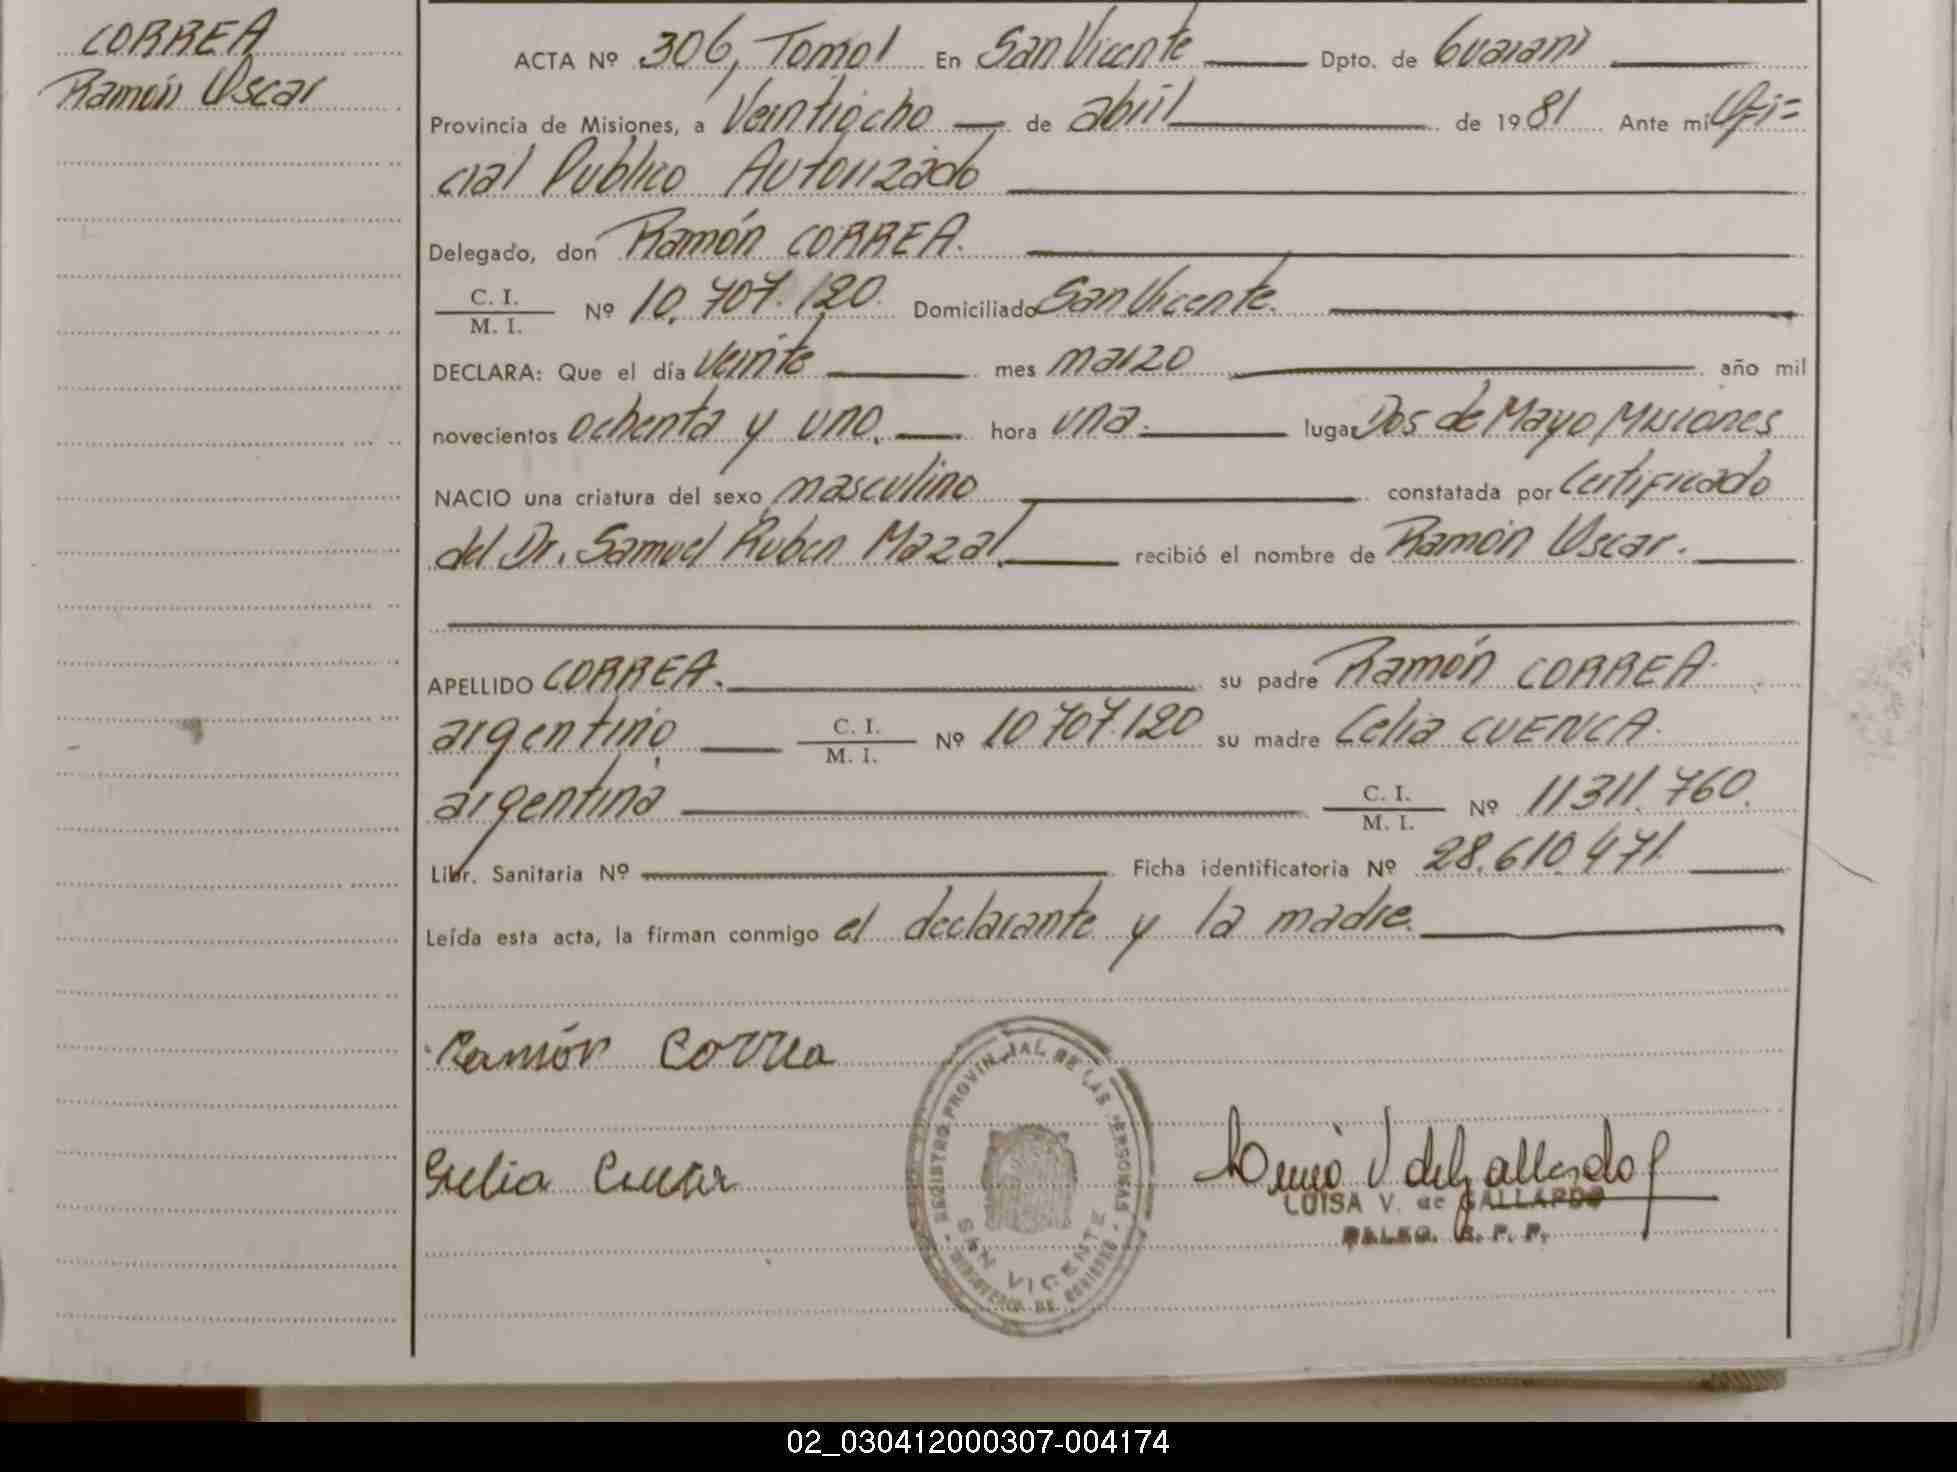 CORREA
Ramón Oscar
ACTA Nº 306, Tomo I En San Vicente Dpto. de Guaraní
Provincia de Misiones, a Veintiocho de abril de 1981 Ante mí Ofi=
cial Publico Autorizado
Delegado, don Ramón CORREA.
C. I.
M. I.
Nº 10.707.120. Domiciliado San Vicente.
DECLARA: Que el día veinte mes marzo año mil
novecientos ochenta y uno. hora una. lugar Dos de Mayo Misiones
NACIO una criatura del sexo masculino constatada por Certificado
del Dr. Samuel Ruben Mazal. recibió el nombre de Ramón Oscar.
APELLIDO CORREA. su padre Ramón CORREA.
argentino, C. I. M. I. Nº 10707.120 su madre Celia CUENCA.
argentina C. I. M. I. Nº 11311.760.
Libr. Sanitaria Nº Ficha identificatoria Nº 28.610.471.
Leída esta acta, la firman conmigo el declarante y la madre.
Ramón Correa
REGISTRO PROVINCIAL DE LAS PERSONAS
SAN VICENTE
MINISTERIO DE GOBIERNO
LUISA V. de GALLARDO
DELEG. R. P. P.
02_030412000307-004174